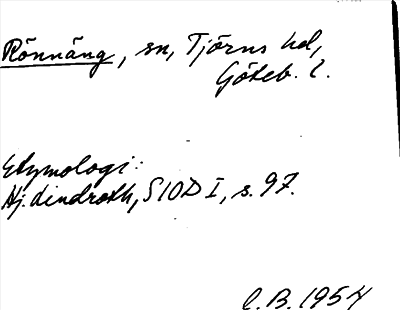 Rönnäng, sn, Tjörns hd,
Göteb. l.
Etymologi:
Hj. Lindroth, SIOD I, s. 97.
C.B. 1954